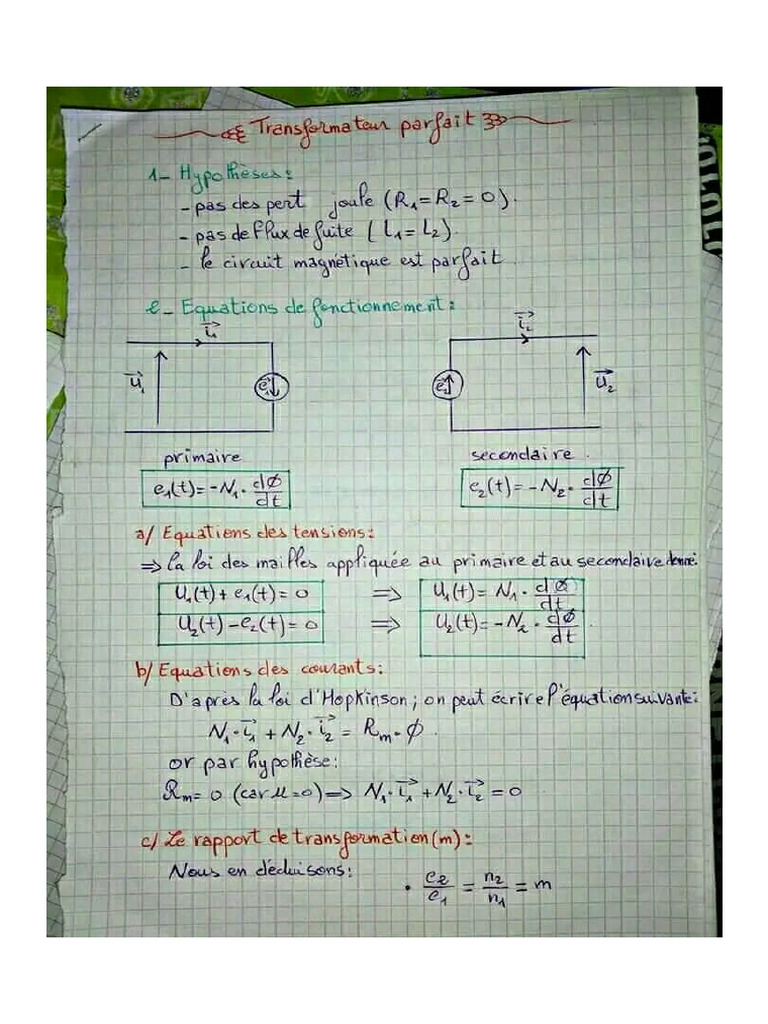 Transformateur parfait
1- Hypothèses:
- pas des pert joule (R₁=R₂=0).
- pas de flux de fuite (l₁=l₂).
- le circuit magnétique est parfait.
2- Equations de fonctionnement:
i₁ i₂
u₁ e₁ e₂ u₂
primaire secondaire.
e₁(t)=-N₁·dØ/dt e₂(t)=-N₂·dØ/dt
a/ Equations des tensions:
⇒ la loi des mailles appliquée au primaire et au secondaire donne:
U₁(t)+e₁(t)=0 ⇒ U₁(t)=N₁·dØ/dt
U₂(t)-e₂(t)=0 ⇒ U₂(t)=-N₂·dØ/dt.
b/ Equations des courants:
D'après la loi d'Hopkinson; on peut écrire l'équation suivante:
N₁·i₁+N₂·i₂=Rm·Ø.
or par hypothèse:
Rm=0 (car μ=0)⇒ N₁·i₁+N₂·i₂=0
c/ Le rapport de transformation(m):
Nous en déduisons: • e₂/e₁ = n₂/n₁ = m